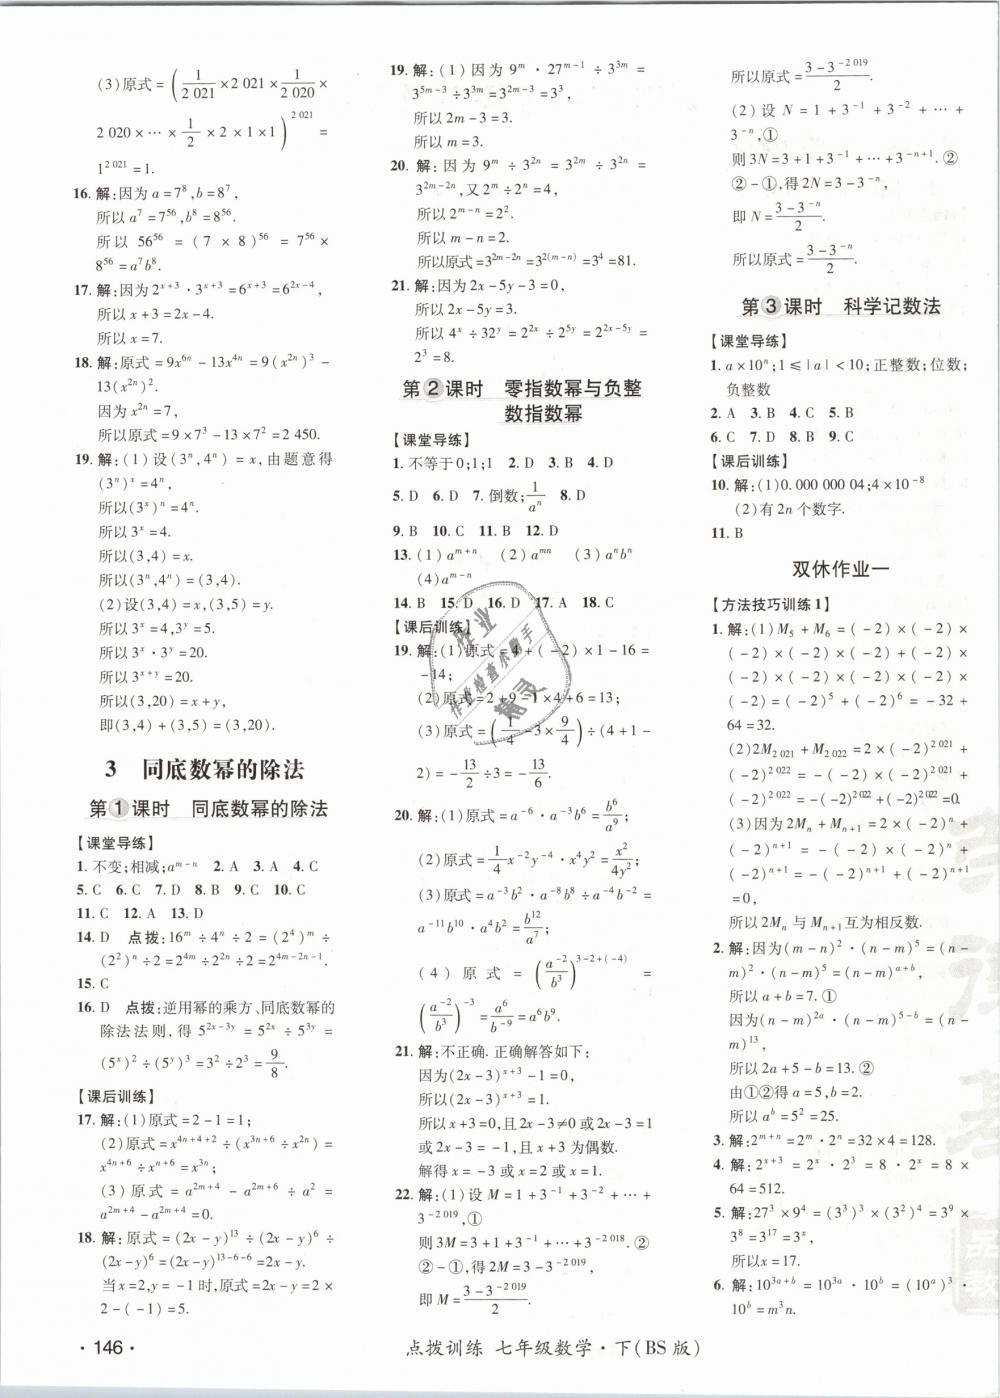 (3)原式=(1/2 021×2 021×1/2 020×
2 020×…×1/2×2×1×1)^2 021=
1^2 021=1.
16.解:因为a=7^8,b=8^7,
所以a^7=7^56,b^8=8^56.
所以56^56=(7×8)^56=7^56×
8^56=a^7b^8.
17.解:因为2^x+3·3^x+3=6^x+3=6^2x-4,
所以x+3=2x-4.
所以x=7.
18.解:原式=9x^6n-13x^4n=9(x^2n)^3-
13(x^2n)^2.
因为x^2n=7,
所以原式=9×7^3-13×7^2=2 450.
19.解:(1)设(3^n,4^n)=x,由题意得
(3^n)^x=4^n,
所以(3^x)^n=4^n.
所以3^x=4.
所以(3,4)=x.
所以(3^n,4^n)=(3,4).
(2)设(3,4)=x,(3,5)=y.
所以3^x=4,3^y=5.
所以3^x·3^y=20.
所以3^x+y=20.
所以(3,20)=x+y,
即(3,4)+(3,5)=(3,20).
3 同底数幂的除法
第1课时 同底数幂的除法
【课堂导练】
1.不变;相减;a^m-n 2.A 3.A 4.C
5.C 6.C 7.D 8.C 9.C 10.C
11.C 12.A 13.D
14.D 点拨:16^m÷4^n÷2=(2^4)^m÷
(2^2)^n÷2=2^4m÷2^2n÷2=2^4m-2n-1.
15.C
16.D 点拨:逆用幂的乘方、同底数幂的
除法法则,得5^2x-3y=5^2x÷5^3y=
(5^x)^2÷(5^y)^3=3^2÷2^3=9/8.
【课后训练】
17.解:(1)原式=2-1=1;
(2)原式=x^4n+4+2÷(x^3n+6÷x^2n)=
x^4n+6÷x^n+6=x^3n;
(3)原式=a^2m+4-a^2m+6÷a^2=
a^2m+4-a^2m+4=0.
18.解:原式=(2x-y)^13÷(2x-y)^6÷
(2x-y)^6=(2x-y)^13-6-6=2x-y.
当x=2,y=-1时,原式=2x-y=2×
2-(-1)=5.
19.解:(1)因为9^m·27^m-1÷3^3m=
3^5m-3÷3^3m=3^2m-3=3^3,
所以2m-3=3.
所以m=3.
20.解:因为9^m÷3^2n=3^2m÷3^2n=
3^2m-2n,又2^m÷2^n=4,
所以2^m-n=2^2.
所以m-n=2.
所以原式=3^2m-2n=3^2(m-n)=3^4=81.
21.解:因为2x-5y-3=0,
所以2x-5y=3.
所以4^x÷32^y=2^2x÷2^5y=2^2x-5y=
2^3=8.
第2课时 零指数幂与负整
数指数幂
【课堂导练】
1.不等于0;1;1 2.D 3.B 4.D
5.D 6.D 7.倒数;1/a^n 8.D
9.B 10.C 11.B 12.D
13.(1)a^m+n (2)a^mn (3)a^nb^n
(4)a^m-n
14.B 15.D 16.D 17.A 18.C
【课后训练】
19.解:(1)原式=4+(-2)×1-16=
-14;
(2)原式=2+9-1-4+6=13;
(3)原式=(1/4-3×9/4)÷(4+1-
2)=-13/2÷3=-13/6.
20.解:(1)原式=a^-6·a^-3b^6=b^6/a^9;
(2)原式=1/4x^-2y^-4·x^4y^2=x^2/4y^2;
(3)原式=a^-3b^2·a^-8b^8÷a^-4b^-2=
a^-11b^10·a^4b^2=b^12/a^7;
(4)原式=(a^-2/b^3)^3-2+(-4)=
(a^-2/b^3)^-3=a^6/b^-9=a^6b^9.
21.解:不正确.正确解答如下:
因为(2x-3)^x+3-1=0,
所以(2x-3)^x+3=1.
所以x+3=0,且2x-3≠0或2x-3=1
或2x-3=-1,且x+3为偶数.
解得x=-3或x=2或x=1.
22.解:(1)设M=1+3^-1+3^-2+…+
3^-2 019,①
则3M=3+1+3^-1+…+3^-2 018.②
②-①,得2M=3-3^-2 019,
即M=3-3^-2 019/2.
所以原式=3-3^-2 019/2.
(2)设N=1+3^-1+3^-2+…+
3^-n,①
则3N=3+1+3^-1+…+3^-n+1.②
②-①,得2N=3-3^-n,
即N=3-3^-n/2.
所以原式=3-3^-n/2.
第3课时 科学记数法
【课堂导练】
1.a×10^n;1≤|a|<10;正整数;位数;
负整数
2.A 3.B 4.C 5.B
6.C 7.D 8.B 9.C
【课后训练】
10.解:(1)0.000 000 04;4×10^-8
(2)有2n个数字.
11.B
双休作业一
【方法技巧训练1】
1.解:(1)M5+M6=(-2)×(-2)×
(-2)×(-2)×(-2)+(-2)×
(-2)×(-2)×(-2)×(-2)×
(-2)=(-2)^5+(-2)^6=-32+
64=32.
(2)2M2 021+M2 022=2×(-2)^2 021+
(-2)^2 022=-(-2)×(-2)^2 021+
(-2)^2 022=-(-2)^2 022+(-2)^2 022=0.
(3)因为2Mn+Mn+1=2×(-2)^n+
(-2)^n+1=-(-2)×(-2)^n+
(-2)^n+1=-(-2)^n+1+(-2)^n+1
=0,
所以2Mn与Mn+1互为相反数.
2.解:因为(m-n)^2·(n-m)^5=(n-
m)^2·(n-m)^5=(n-m)^a+b,
所以a+b=7.①
因为(n-m)^2a·(n-m)^5-b=(n-
m)^13,
所以2a+5-b=13.②
由①②得a=5,b=2.
所以a^b=5^2=25.
3.解:2^m+n=2^m·2^n=32×4=128.
4.解:2^x+3=2^x·2^3=8·2^x=8×
64=512.
5.解:27^3×9^4=(3^3)^3×(3^2)^4=3^9×
3^8=3^17=3^x,
所以x=17.
6.解:10^3a+b=10^3a·10^b=(10^a)^3·
10^b=m^3n.
·146·
点拨训练 七年级数学·下(BS版)
作业
作业检查小助手
精灵